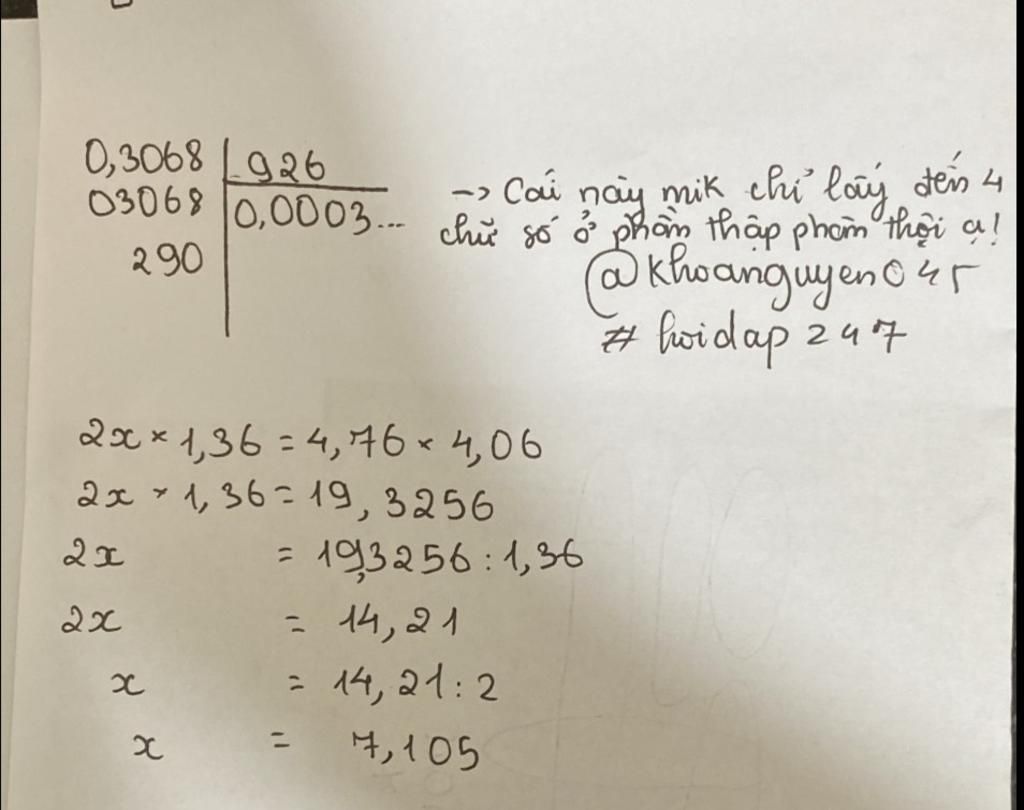 0,3068 926
03068 0,0003...
290
-> Cái này mik chỉ lấy đến 4
chữ số ở phần thập phân thôi ạ!
@khoanguyen045
# hoidap 247
2x × 1,36 = 4,76 × 4,06
2x × 1,36 = 19,3256
2x = 19,3256 : 1,36
2x = 14,21
x = 14,21 : 2
x = 7,105